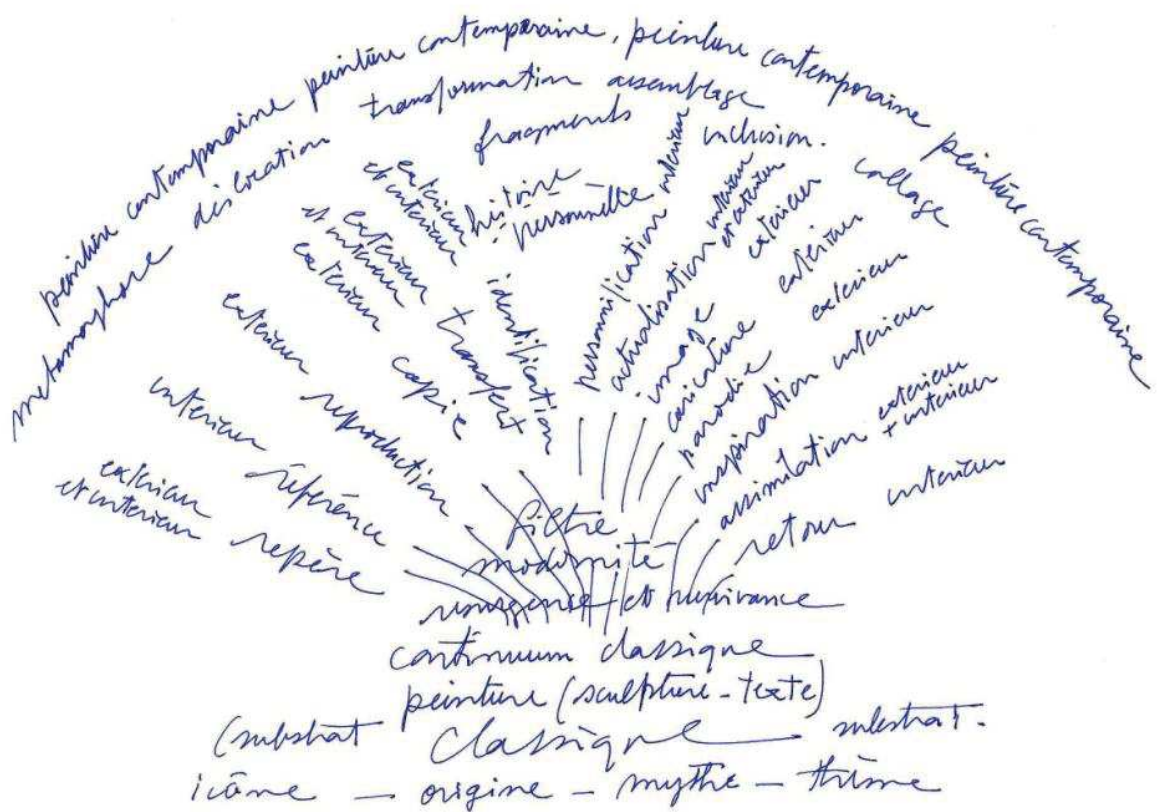 peinture contemporaine peinture contemporaine, peinture contemporaine peinture contemporaine
metamorphose dislocation transformation assemblage inclusion. collage
fragments
histoire
personnelle
exterieur
et interieur repère
interieur référence
exterieur reproduction
exterieur copie
exterieur
et interieur transfert
exterieur
et interieur identification
personnification interieur
actualisation interieur
et exterieur
image exterieur
caricature exterieur
parodie exterieur
inspiration interieur
assimilation exterieur
+ interieur
retour interieur
filtre
modernité
resurgence et survivance
continuum classique
peinture (sculpture - texte)
(substrat classique substrat.
icône - origine - mythe - thème